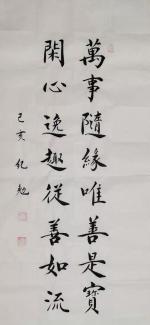 萬事隨緣唯善是寶
閑心逸趣從善如流
己亥 化勉